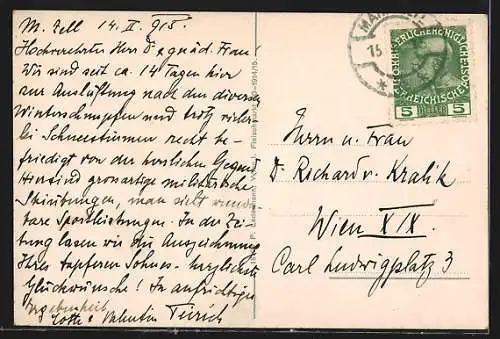 M. Zell 14. II. 915.
Hochverehrter Herr Dr., gnäd. Frau!
Wir sind seit ca. 14 Tagen hier
zur Auslüftung nach den diversen
Winterschnupfen und trotz vieler-
lei Schneestürmen recht be-
friedigt von der herrlichen Gegend.
Hier sind grossartige militärische
Skiübungen, man sieht wunder-
bare Sportleistungen. In der Zei-
tung lasen wir die Auszeichnung
Ihres tapferen Sohnes - herzlichste
Glückwünsche! In aufrichtiger
Ergebenheit
Valentin
5
HELLER
5
Herrn u. Frau
Dr. Richard v. Kralik
Wien XIX.
Carl Ludwigplatz 3